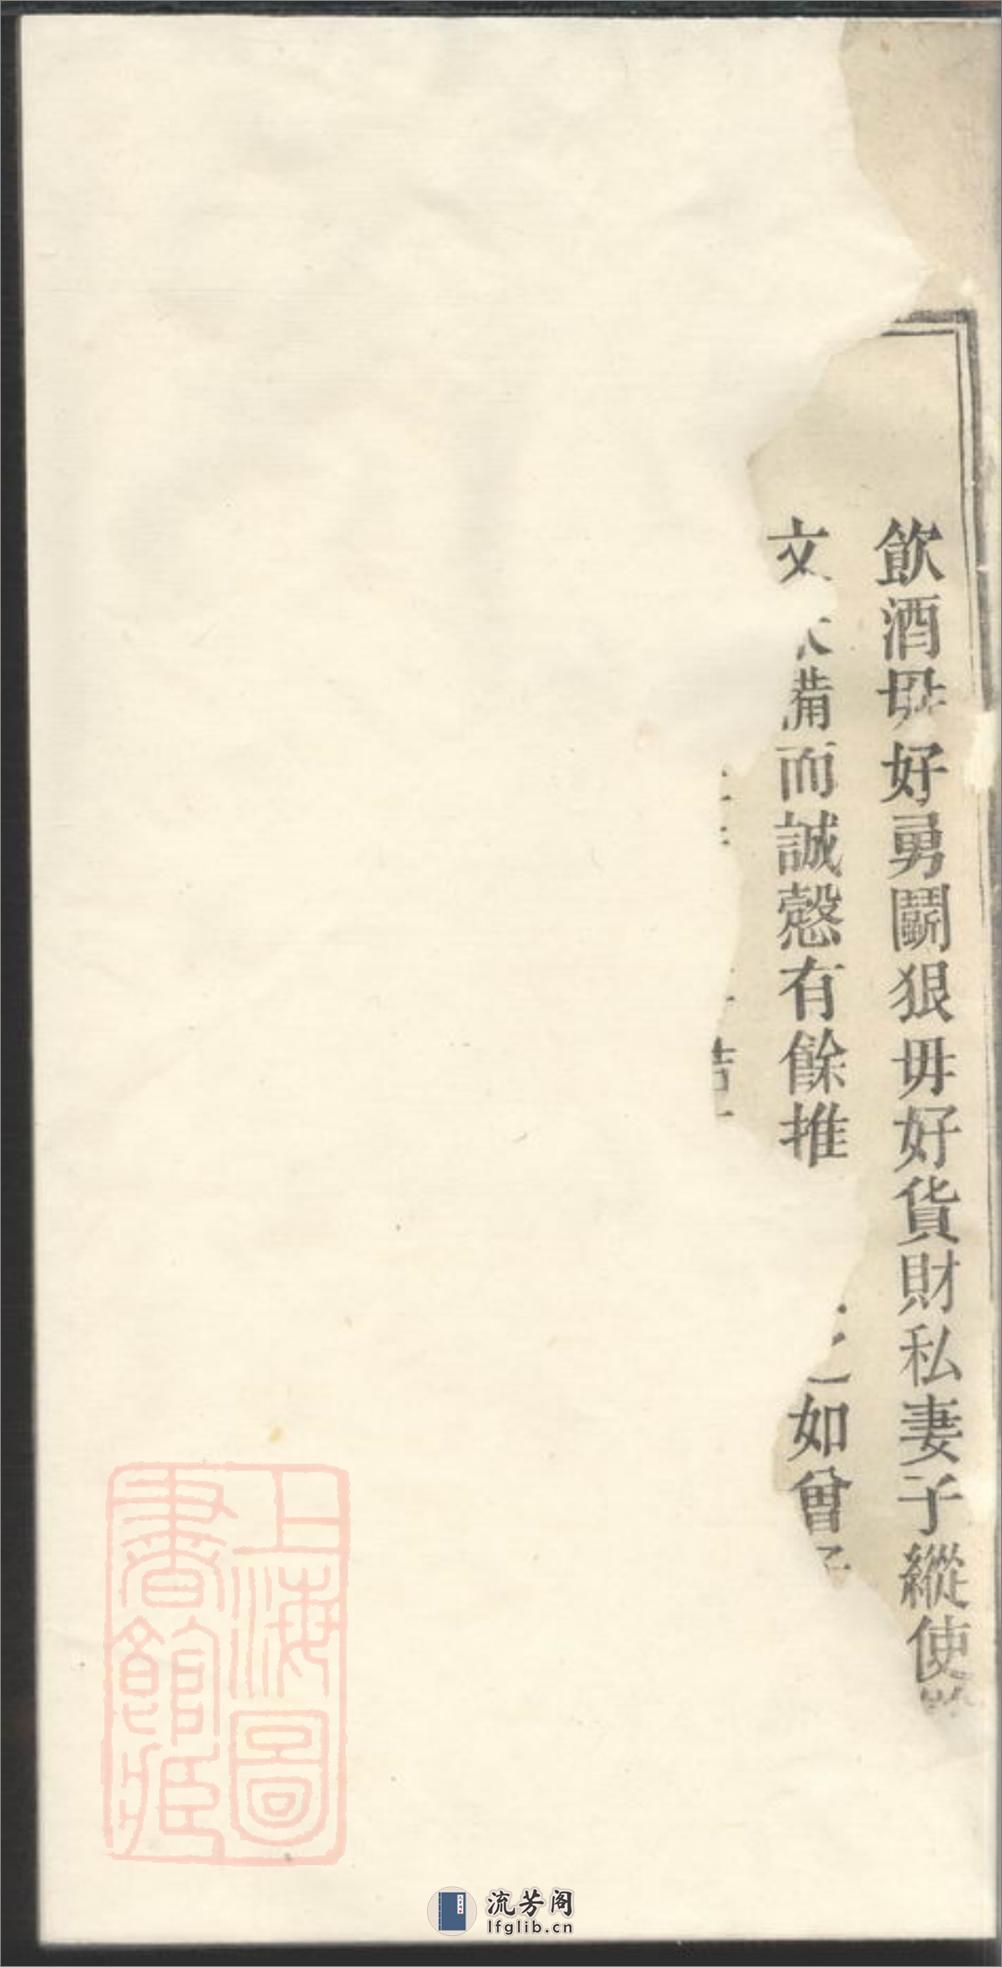 飲酒毋好勇鬭狠毋好貨財私妻子縱使
文
備而誠慤有餘推
之如曾子
上海圖
書館藏
流芳阁
lfglib.cn